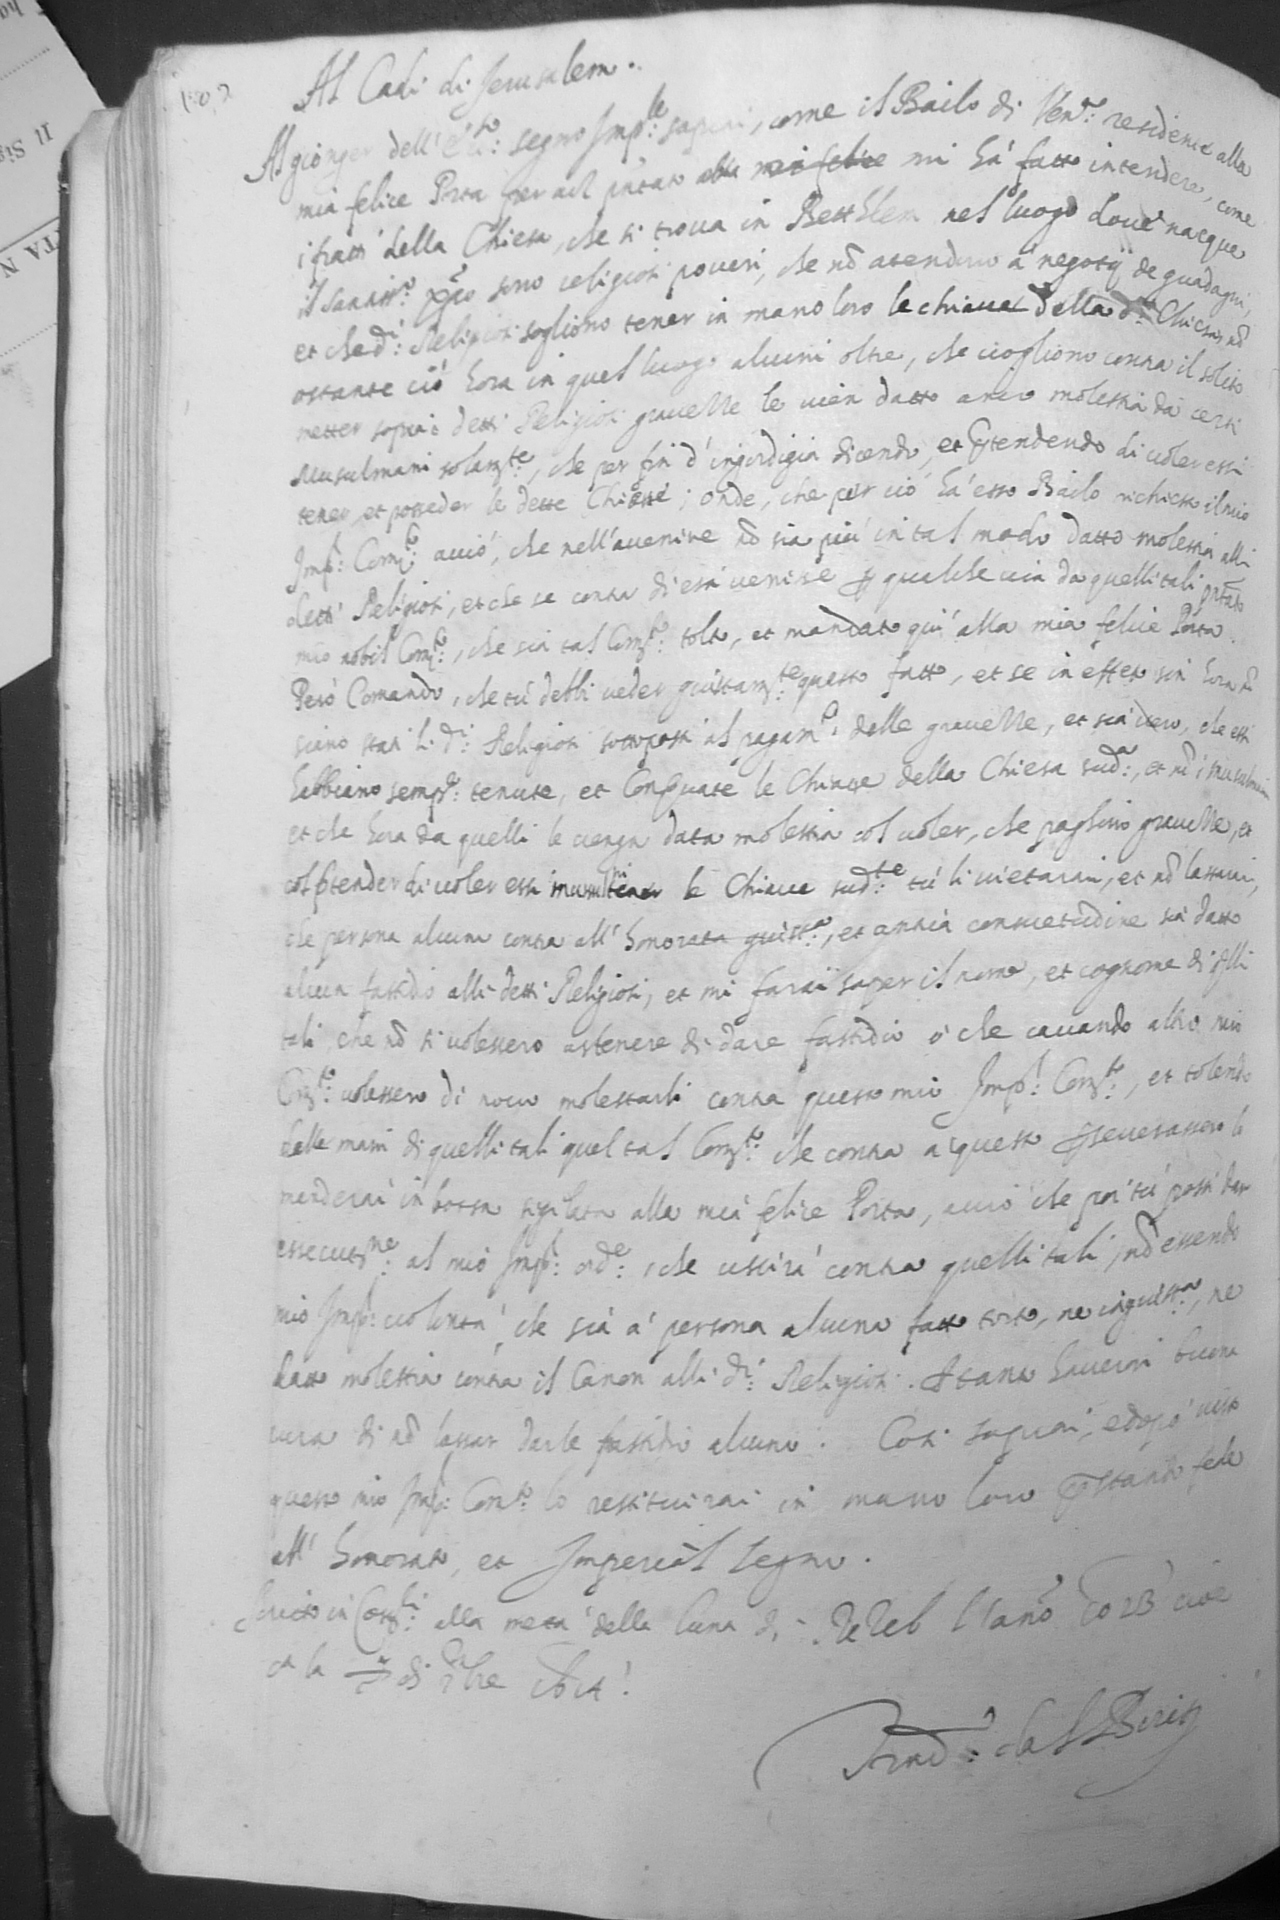 Al Cadi di Jerusalem.
Al gionger dell' segno Imp.le saprai, come il Bailo di Ven.a residente alla
mia felice Porta per arz putato alla mia felice mi hà fatto intendere, come
i frati della Chiesa, che si troua in Betthlem nel luogo doue nacque
il Santiss.o Xpo sono religiosi poueri, che nõ atendono à negotij de guadagni,
et che d.i Religiosi sogliono tener in mano loro le chiaue della d.ta Chiesa, nõ
ostante ciò hora in quel luogo alcuni oltre, che uogliono contra il solito
metter sopra i detti Religiosi grauezze le uien datto anco molestia da certi
Musulmani solam.te, che per fin d'ingordigia dicendo, et pretendendo di uoler essi
tener, et posseder le dette Chiese; onde, che per ciò hà esso Bailo richiesto il mio
Imp.l Com.to acciò, che nell'auenire nõ sia più in tal modo datto molestia alli
detti Religiosi, et che se contra di essi uenisse per qualche uia da quelli tali
mio nobil Com.to, che sia tal Com.to tolto, et mandato quì alla mia felice Porta.
Però Comando, che tù debbi ueder giustam.te questo fatto, et se in effetto sin hora nõ
siano stati li d.i Religiosi sottoposti al pagam.o delle grauezze, et sia uero, che essi
habbiano sempre tenute, et Conseruate le Chiaue della Chiesa sud.a, et nõ i musulmani
et che hora da quelli le uenga data molestia col uoler, che paghino grauezze, et
col pretender di uoler essi musulmani tener le Chiaue sud.te tù li uietarai, et nõ lassarai,
che persona alcuna contra all' honorata giust.a, et antica consuetudine sia datto
alcun fastidio alli detti Religiosi, et mi farai saper il nome, et cognome di qlli
tali, che nõ si uolessero astenere di dare fastidio ò che cauando altro mio
Com.to uolessero di nouo molestarli contra questo mio Imp.l Com.to, et tolendo
dalle mani di quelli tali quel tal Com.to che contra à questo perseuerassero lo
manderai in borsa sigilata alla mia felice Porta, acciò che poi tù possi dar
essecut.ne al mio Imp.l ord.e, che ussirà contra quelli tali, nõ essendo
mio Imp.l uolontà, che sia à persona alcuna fatto torto, ne ingiust.a, ne
datto molestia contra il Canon alli d.i Religiosi. Per tanto hauerai buona
cura di nõ lassar darle fastidio alcuno. Così saprai, e dopò uisto
questo mio Imp.l Com.to lo restituirai in mano loro prestando fede
all' honorato, et Imperial segno.
Scritto in Cost.li alla metà della luna di Rezeb l'anno 1023 cioè